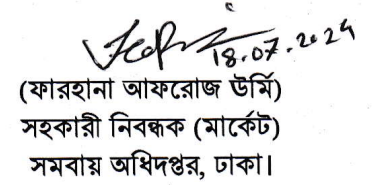 18.07.2024
(ফারহানা আফরোজ উর্মি)
সহকারী নিবন্ধক (মার্কেট)
সমবায় অধিদপ্তর, ঢাকা।